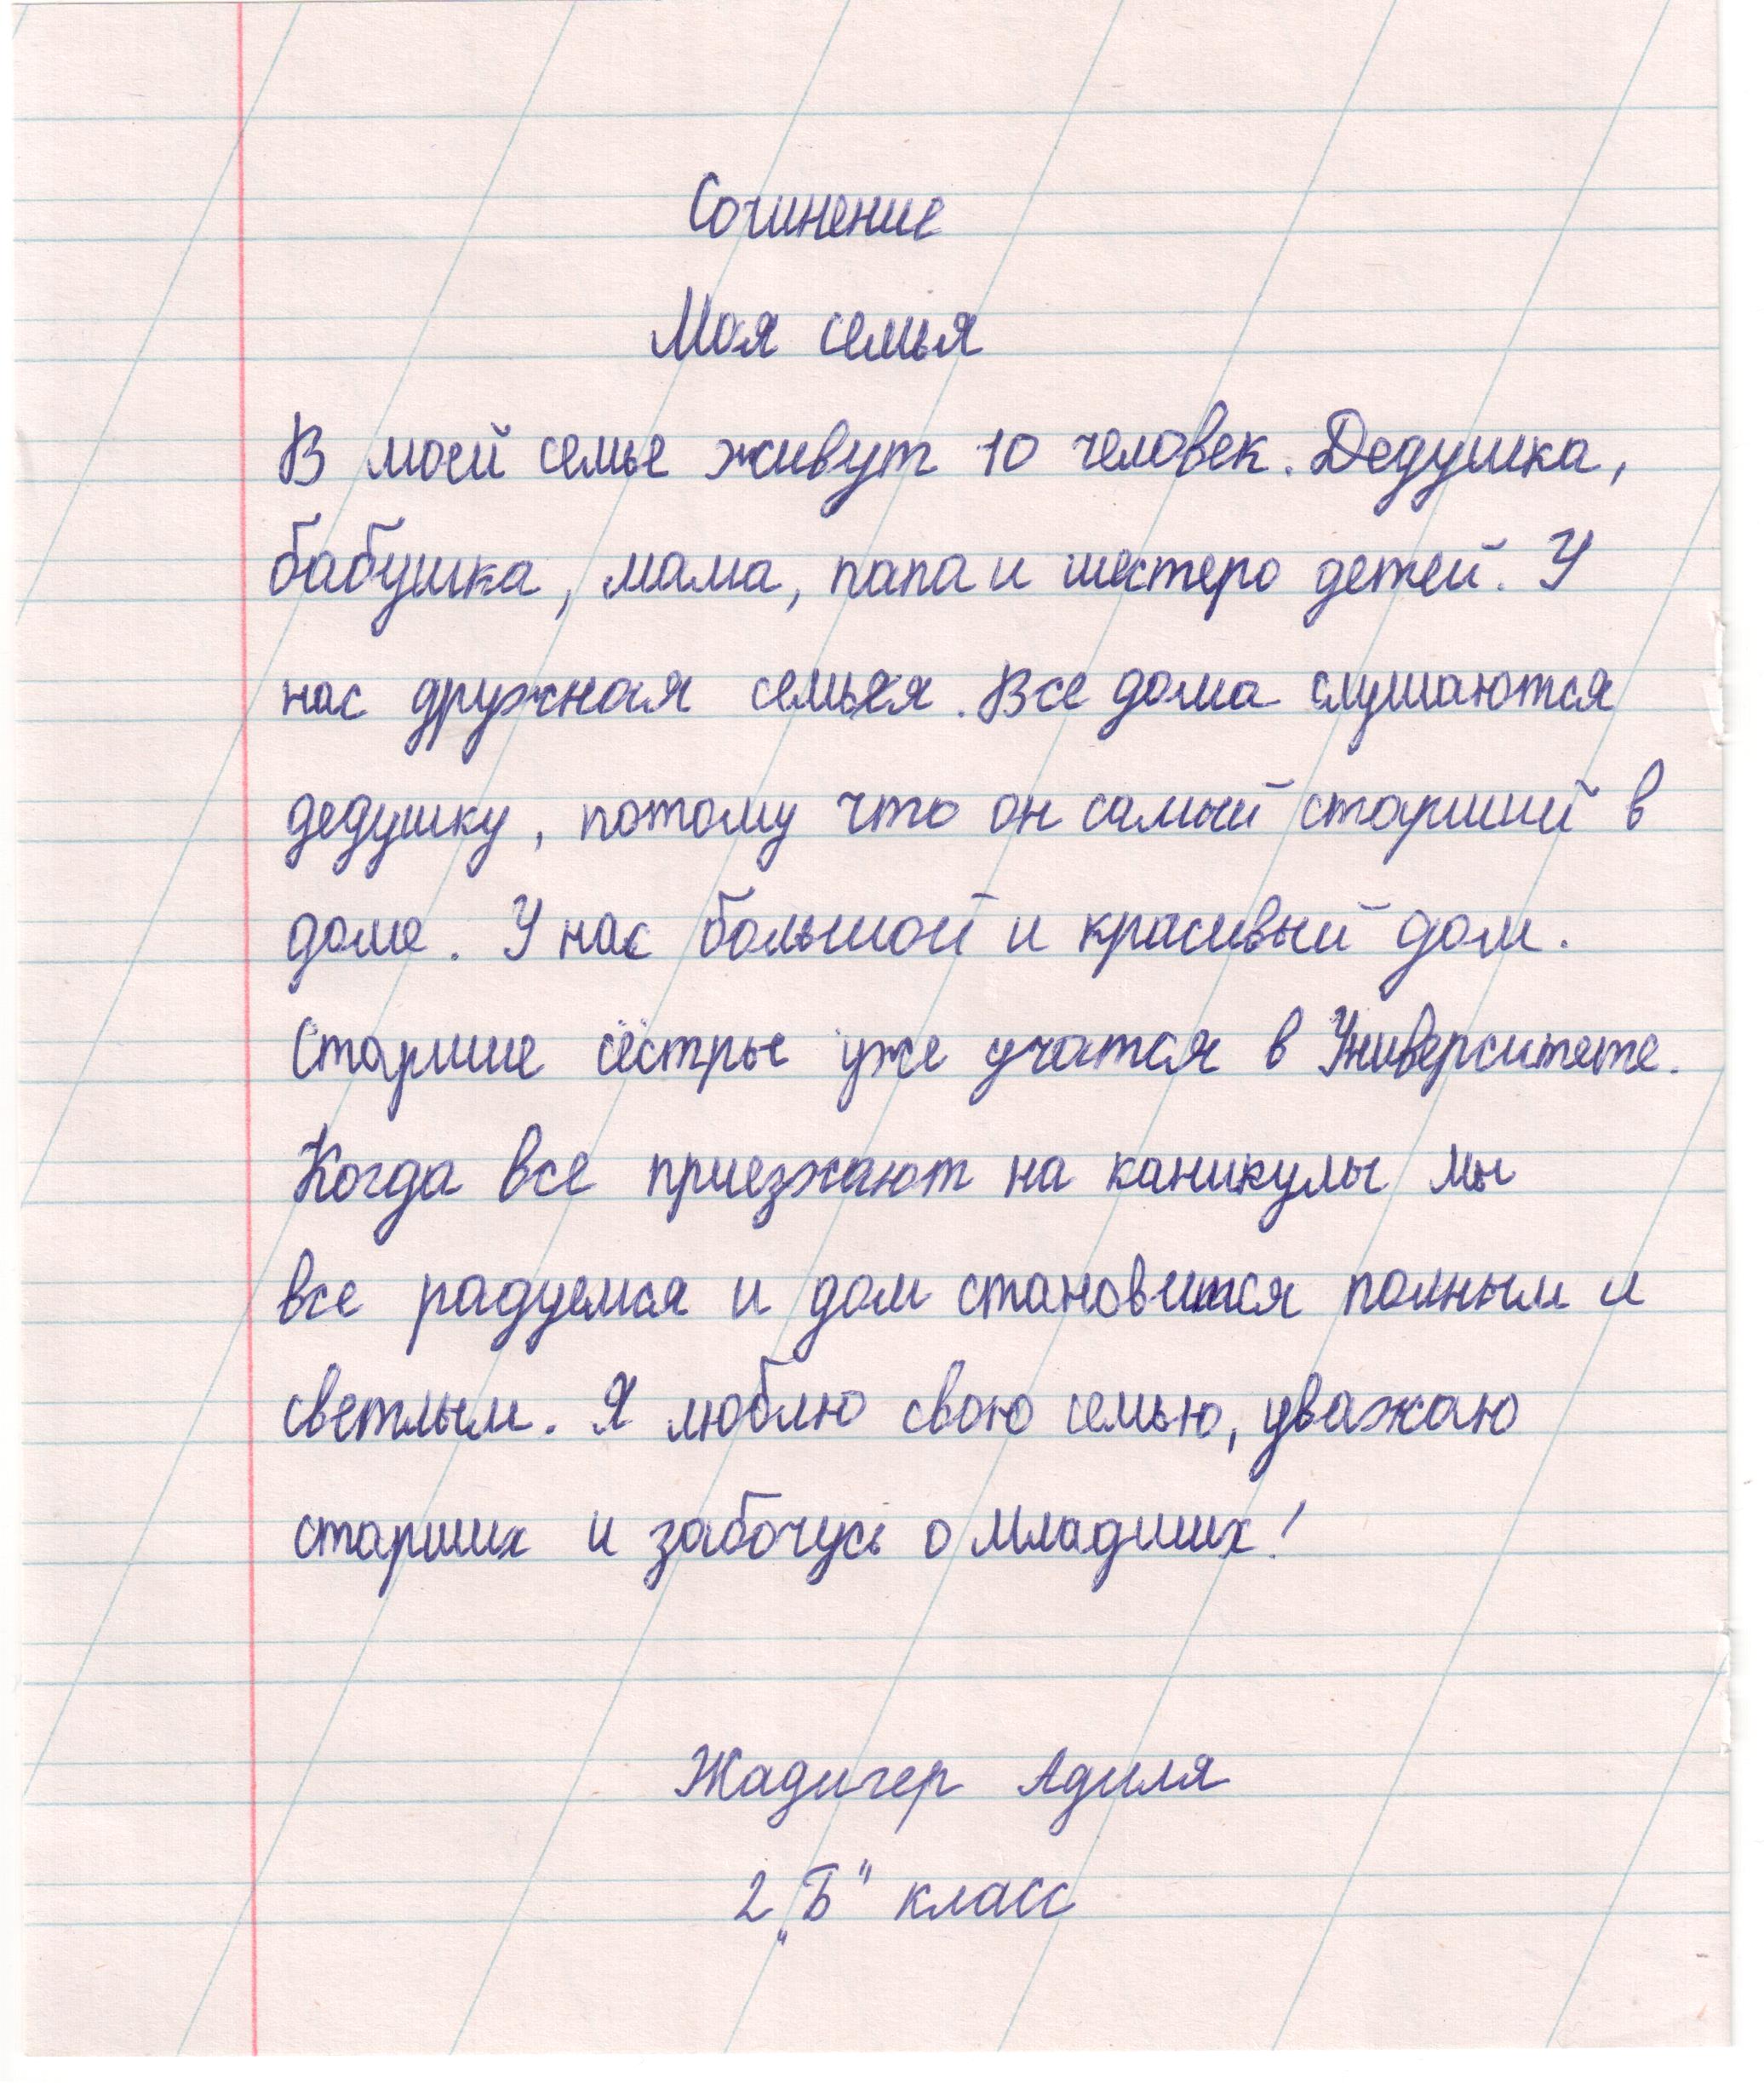 Сочинение
Моя семья
В моей семье живут 10 человек. Дедушка,
бабушка, мама, папа и шестеро детей. У
нас дружная семья. Все дома слушаются
дедушку, потому что он самый старший в
доме. У нас большой и красивый дом.
Старшие сёстры уже учатся в Университете.
Когда все приезжают на каникулы мы
все радуемся и дом становится полным и
светлым. Я люблю свою семью, уважаю
старших и забочусь о младших!
Жадигер Адиля
2 „Б" класс